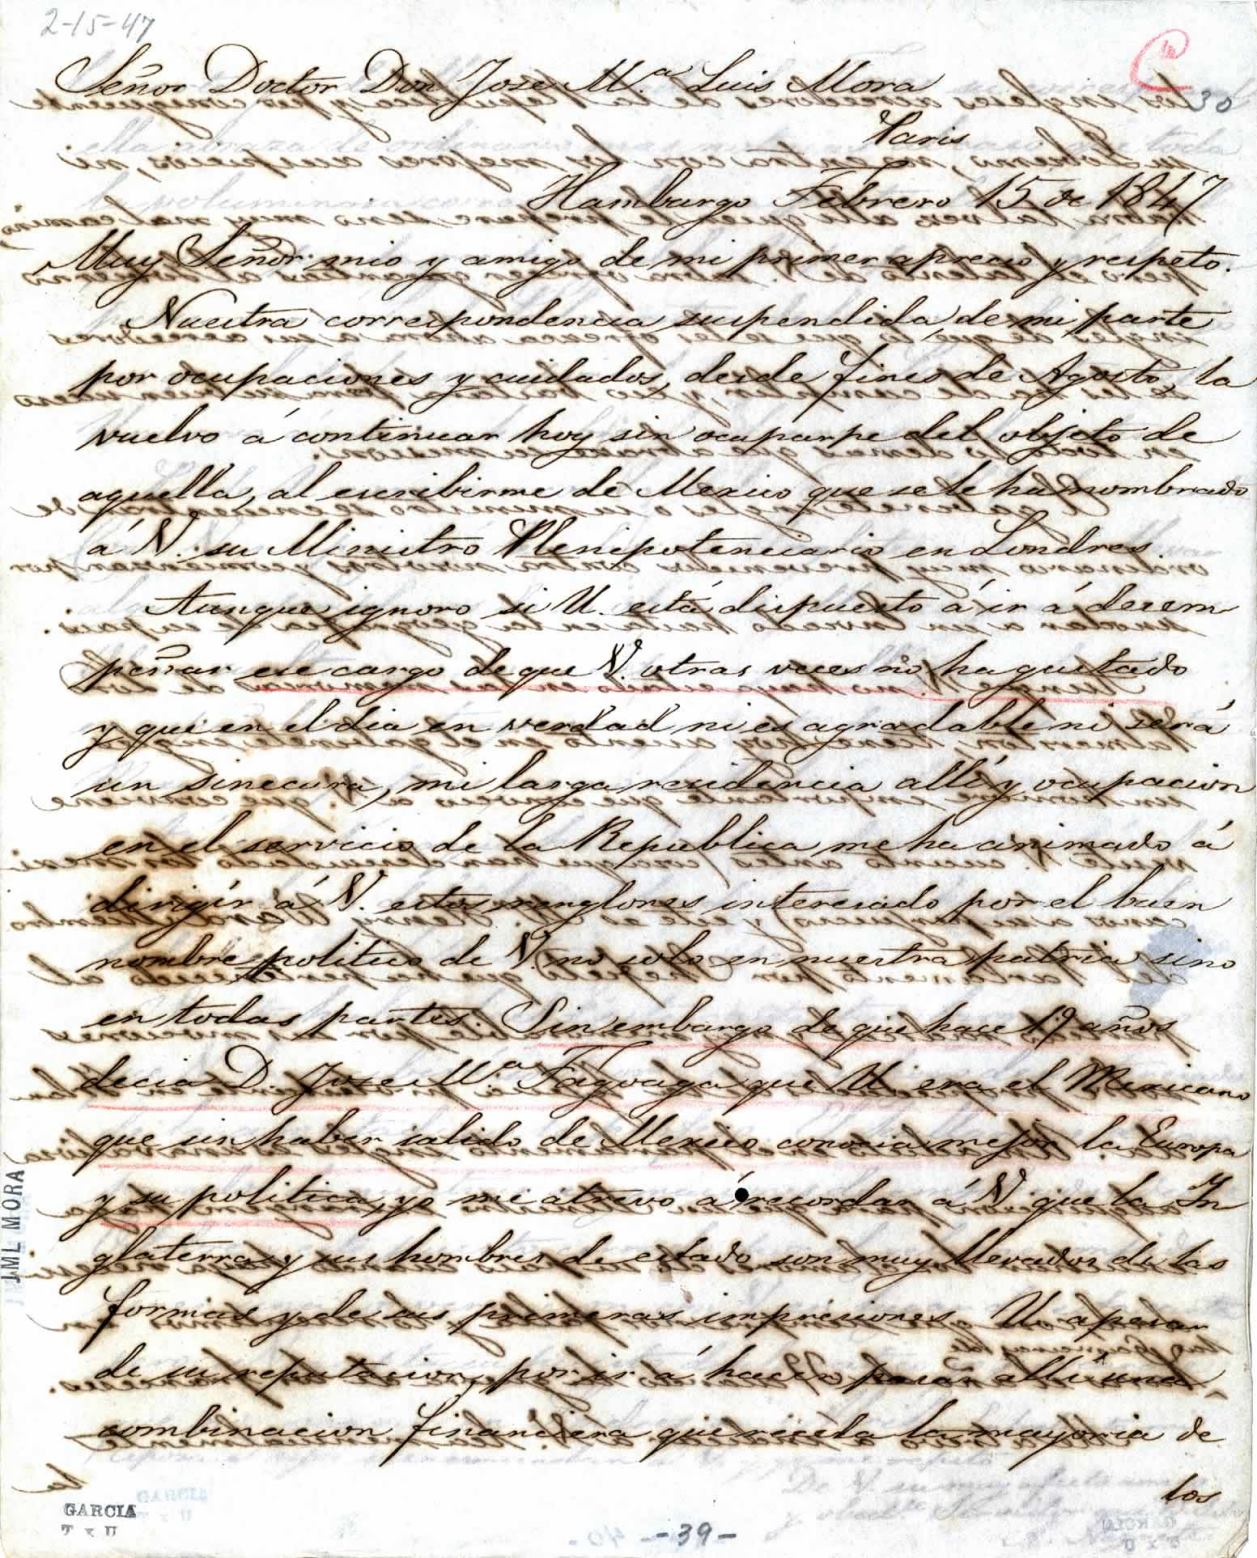 2-15-47
30
Señor Doctor Don Joze M.ª Luis Mora
Paris
Hamburgo Febrero 15 de 1847
Muy Señor mio y amigo de mi primer aprecio y respeto.
Nuestra correspondencia suspendida de mi parte
por ocupaciones y cuidados, desde fines de Agosto, la
vuelvo á continuar hoy sin ocuparpe del objeto de
aquella, al escribirme de Mexico que se le ha nombrado
á V. su Ministro Plenipotenciario en Londres.
Aunque ignoro si V. está dispuesto á ir á desem
peñar ese cargo de que V. otras veces no ha gustado
y que en el dia en verdad ni es agradable ni será
un sinecura, mi larga residencia allí y ocupacion
en el servicio de la Republica me ha animado á
dirigir á V. estos renglones interesado por el buen
nombre politico de V. no solo en nuestra patria sino
en todas partes. Sin embargo de que hace 19 años
decia D. Joze M.ª Fagoaga que V. era el Mexicano
que sin haber salido de Mexico conocia mejor la Europa
y su politica, yo me atrevo á recordar á V. que la In
glaterra y sus hombres de estado son muy llevados de las
formas y de sus primeras impresiones. V. apesar
de su reputacion, por ir á hacer pasar allí una
combinacion financiera que recela la mayoria de
los
JML MORA
GARCIA
T x U
-39-